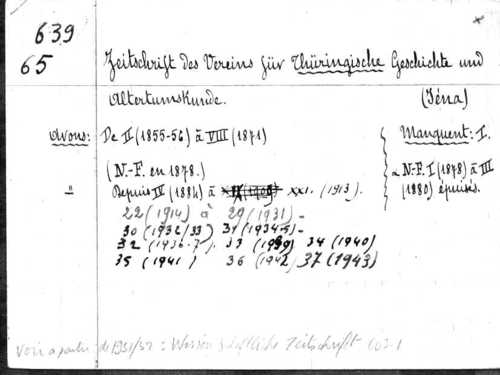 639
65
Zeitschrift des Vereins für Thüringische Geschichte und
Altertumskunde. (Iéna)
Avons: De II (1855-56) à VIII (1871) Manquent: I.
(N.-F. en 1878.) N.-F. I (1878) à III
" Depuis IV (1884) à XXI. (1913). (1880) épuisés.
22 (1914) à 29 (1931) -
30 (1932/33) 31 (1934-5) -
32 (1936-7). 33 (1939) 34 (1940)
35 (1941) 36 (1942) 37 (1943)
Voir à partir de 1951/52 : Wissenschaftliche Zeitschrift